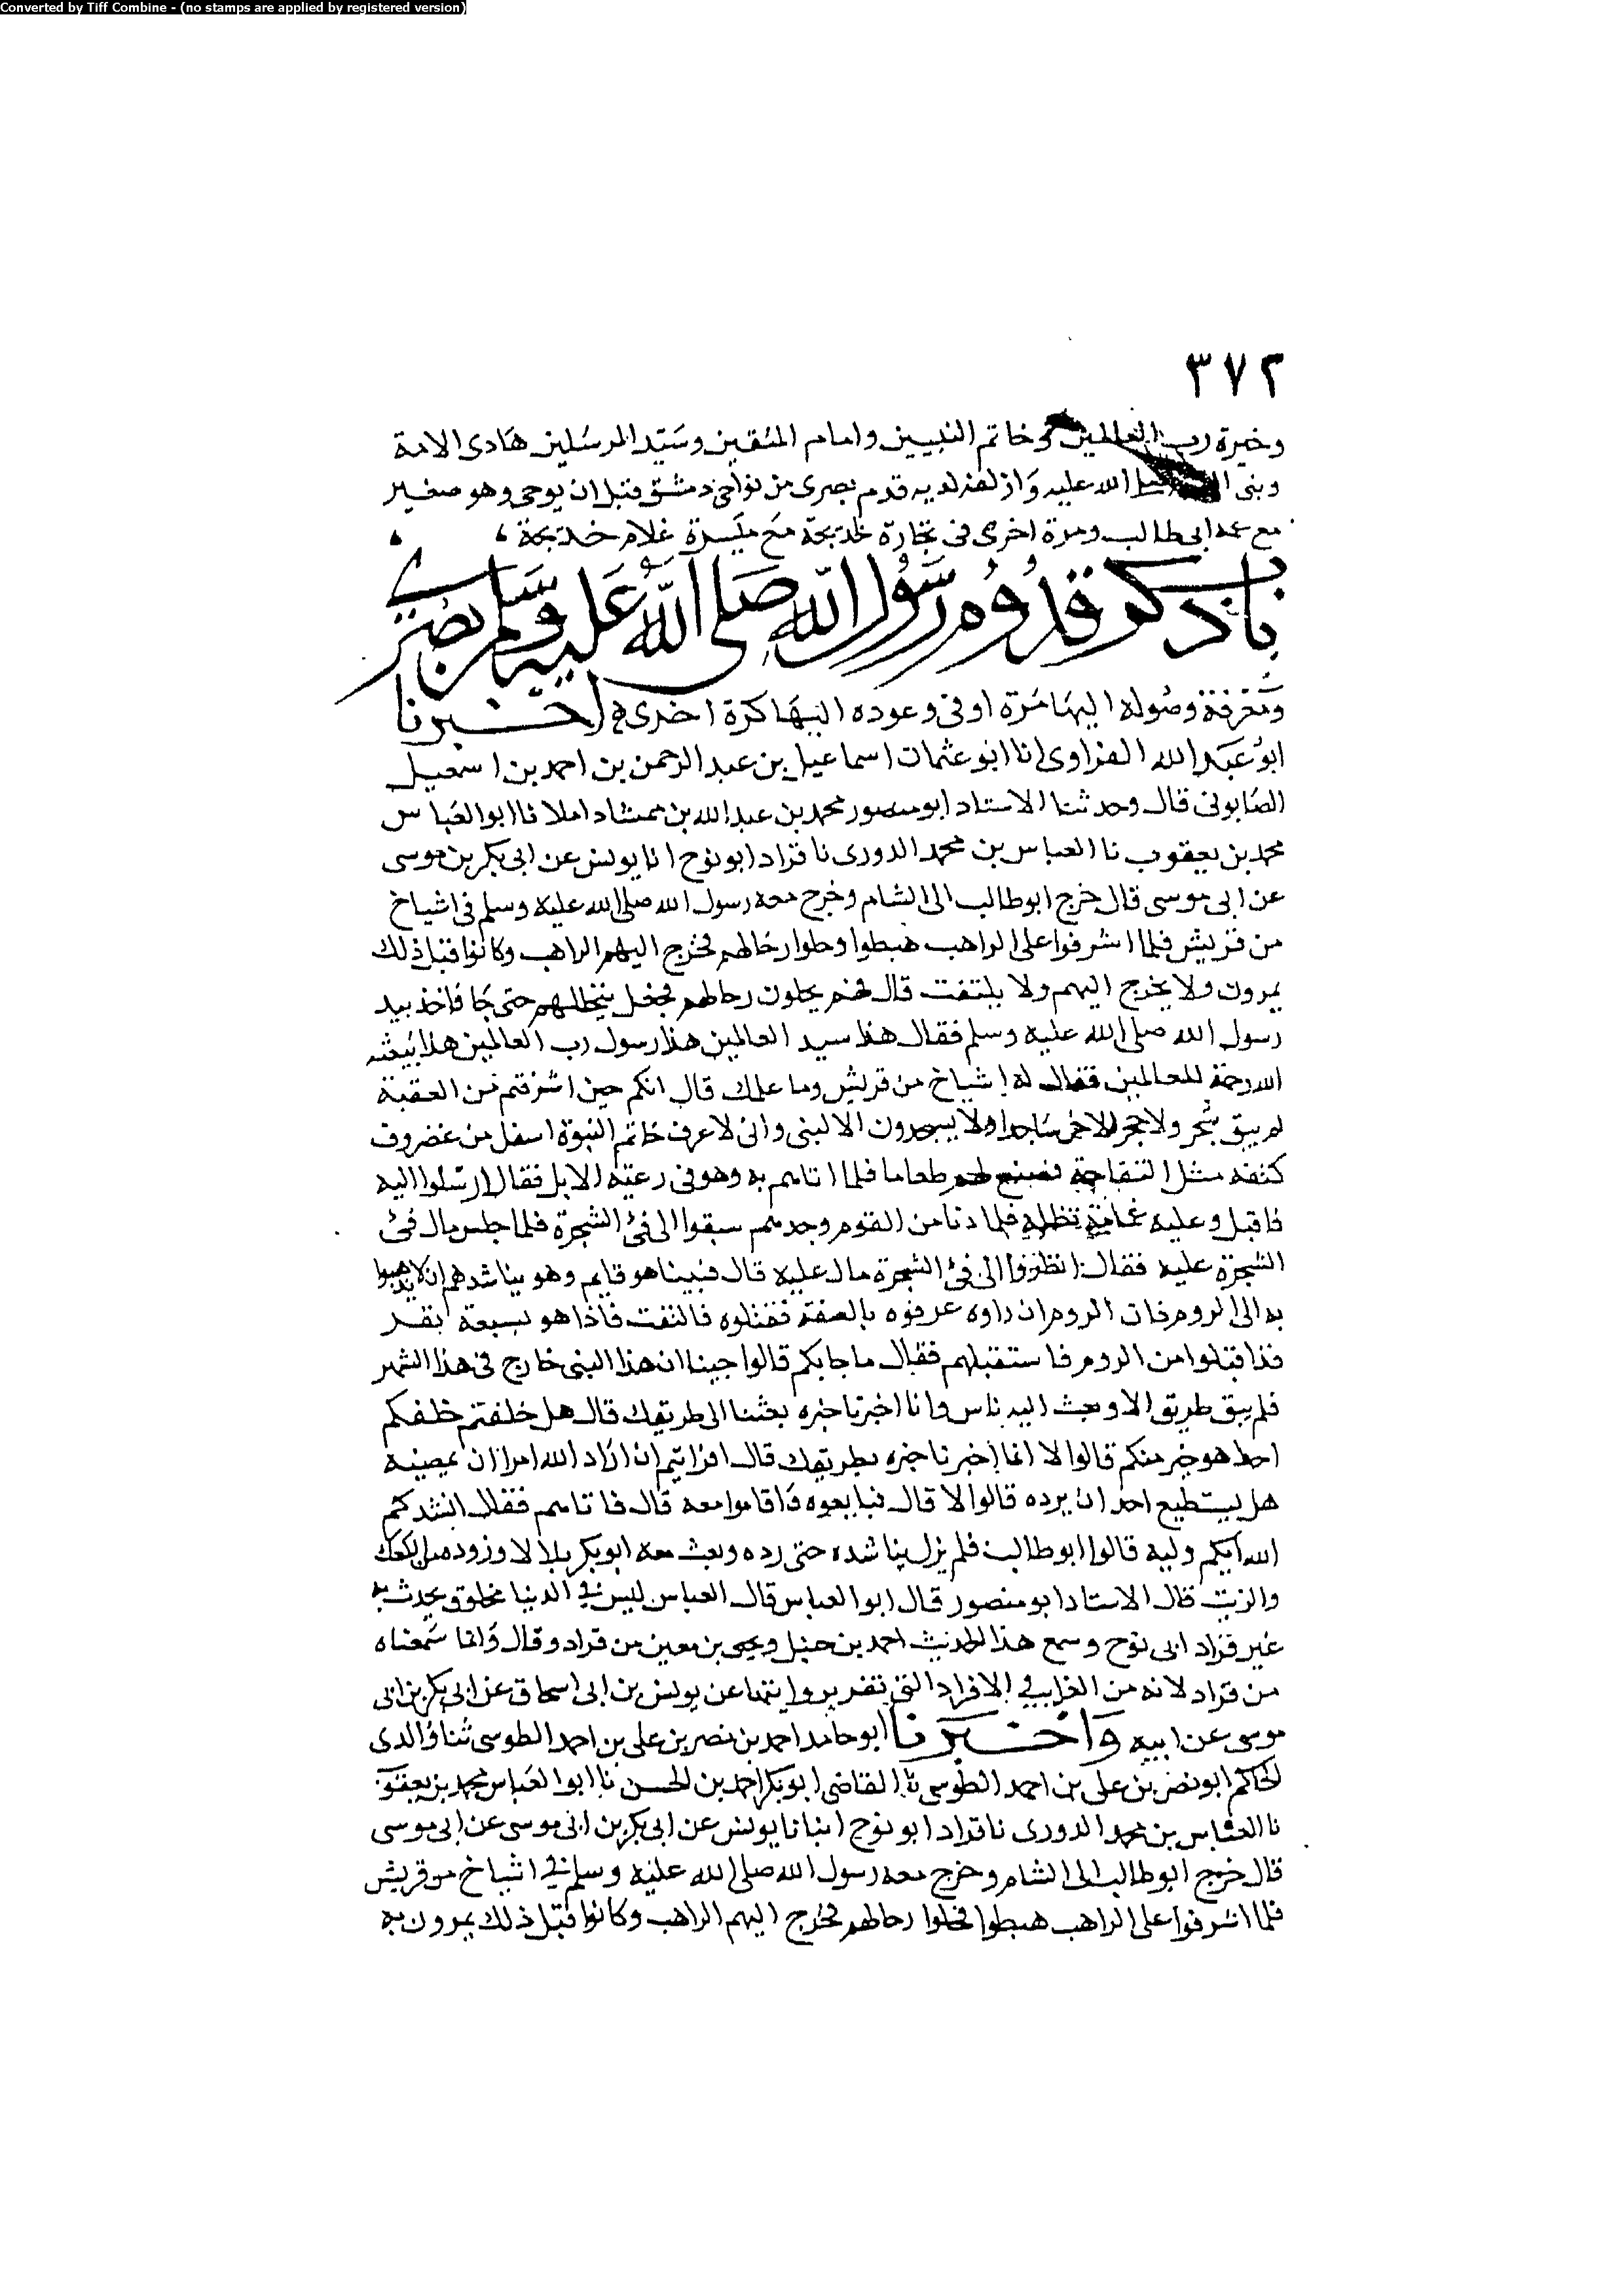 Converted by Tiff Combine - (no stamps are applied by registered version)
٣٧٢
وخيرة رب العالمين وخاتم النبيين وامام المتقين وسيد المرسلين هادى الامة
ونبى الله عليه وازلفه لديه قدم بصرى من نواحى دمشق قبل ان يوحى وهو صغير
مع عمه ابى طالب ومرة اخرى فى تجارة لخديجة مع ميسرة غلام خديجة
باب ذكر قدوم رسول الله صلى الله عليه وسلم بصرى
ومعرفة وصوله اليها مرة اولى وعوده اليها كرة اخرى اخبرنا
ابو عبد الله الفراوى انا ابو عثمان اسماعيل بن عبد الرحمن بن احمد بن اسمعيل
الصابونى قال وحدثنا الاستاد ابو منصور محمد بن عبد الله بن حمشاد املا نا ابو العباس
محمد بن يعقوب نا العباس بن محمد الدورى نا قراد ابو نوح انا يونس عن ابى بكر بن موسى
عن ابى موسى قال خرج ابو طالب الى الشام وخرج معه رسول الله صلى الله عليه وسلم فى اشياخ
من قريش فلما اشرفوا على الراهب هبطوا وحلوا رحالهم فخرج اليهم الراهب وكانوا قبل ذلك
يمرون ولا يخرج اليهم ولا يلتفت قال فهم يحلون رحالهم فجعل يتخللهم حتى جا فاخذ بيد
رسول الله صلى الله عليه وسلم فقال هذا سيد العالمين هذا رسول رب العالمين هذا يبعثه
الله رحمة للعالمين فقال له اشياخ من قريش وما علمك قال انكم حين اشرفتم من العقبة
لم يبق شجر ولا حجر الا خر ساجدا ولا يسجدون الا لنبى وانى لاعرف خاتم النبوة اسفل من غضروف
كتفه مثل التفاحة فصنع لهم طعاما فلما اتاهم به وهو فى رعية الابل فقال ارسلوا اليه
فاقبل وعليه غمامة تظله فلما دنا من القوم وجدهم سبقوا الى فئ الشجرة فلما جلس مال فئ
الشجرة عليه فقال انظروا الى فئ الشجرة مال عليه قال فبينا هو قايم وهو يناشدهم ان لا يذهبوا
به الى الروم فان الروم ان راوه عرفوه بالصفة فقتلوه فالتفت فاذا هو بسبعة نفر
قد اقبلوا من الروم فاستقبلهم فقال ما جابكم قالوا جينا ان هذا النبى خارج فى هذا الشهر
فلم يبق طريق الا وبعث اليه ناس وانا اخبرنا خبره بعثنا الى طريقك قال هل خلفتم خلفكم
احد هو خير منكم قالوا لا انما اخبرنا خبره بطريقك قال افرايتم ان اراد الله امرا ان يمضيه
هل يستطيع احد ان يرده قالوا لا قال فبايعوه واقاموا معه قال فاتاهم فقال انشدكم
الله ايكم وليه قالوا ابو طالب فلم يزل يناشده حتى رده وبعث معه ابو بكر بلالا وزوده من الكعك
والزيت قال الاستاد ابو منصور قال ابو العباس قال العباس ليس فى الدنيا مخلوق يحدث به
غير قراد ابى نوح وسمع هذا الحديث احمد بن حنبل ويحيى بن معين من قراد وقال وانما سمعناه
من قراد لانه من الغرايب الافراد التى تفرد بروايتها عن يونس بن ابى اسحاق عن ابى بكر بن ابى
موسى عن ابيه واخبرنا ابو حامد احمد بن نصر بن على بن احمد الطوسى ثنا والدى
الحاكم ابو نصر بن على بن احمد الطوسى نا القاضى ابو بكر احمد بن الحسن نا ابو العباس محمد بن يعقوب
نا العباس بن محمد الدورى نا قراد ابو نوح انبانا يونس عن ابى بكر بن ابى موسى عن ابى موسى
قال خرج ابو طالب الى الشام وخرج معه رسول الله صلى الله عليه وسلم فى اشياخ من قريش
فلما اشرفوا على الراهب هبطوا فحلوا رحالهم فخرج اليهم الراهب وكانوا قبل ذلك يمرون به